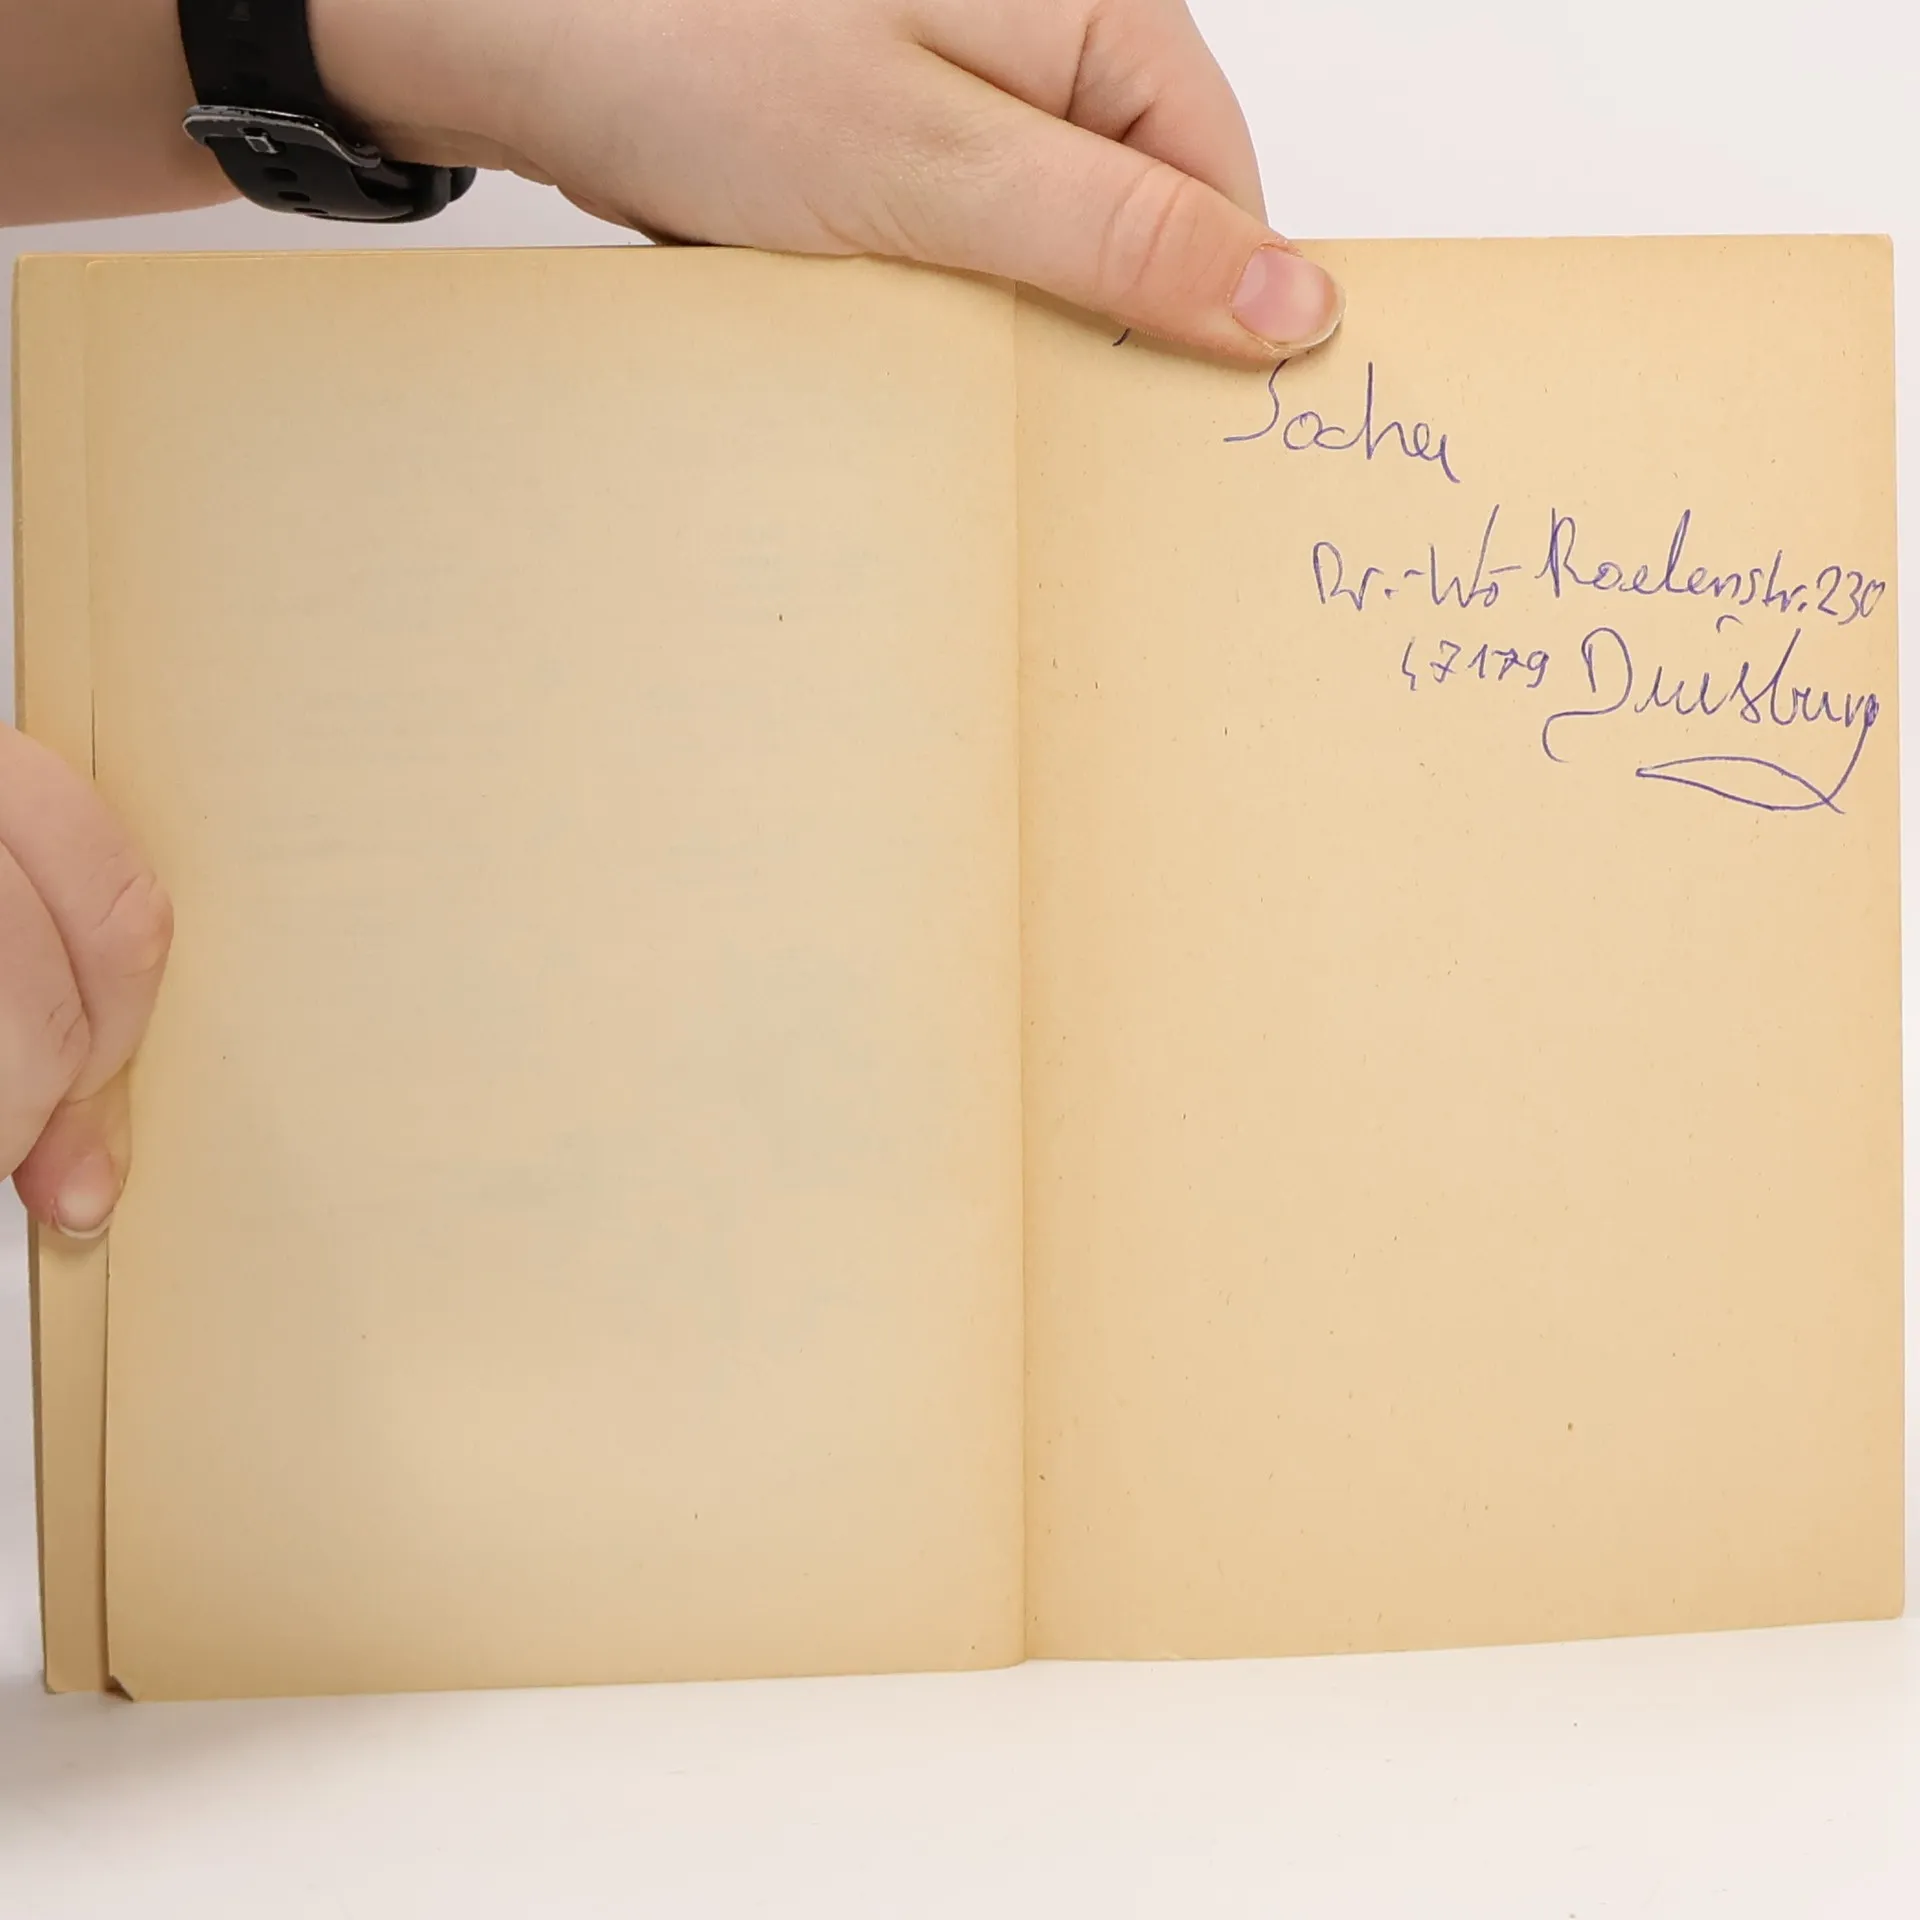 Socher
Dr.-Wo-Roelenstr. 230
47179 Duisburg